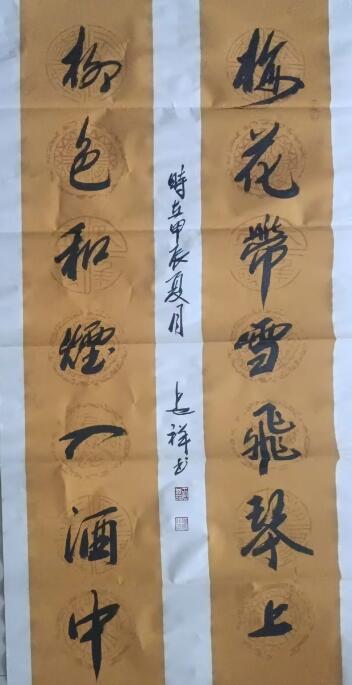 梅花帶雪飛琴上
柳色和煙入酒中
時在甲辰夏月
祥书